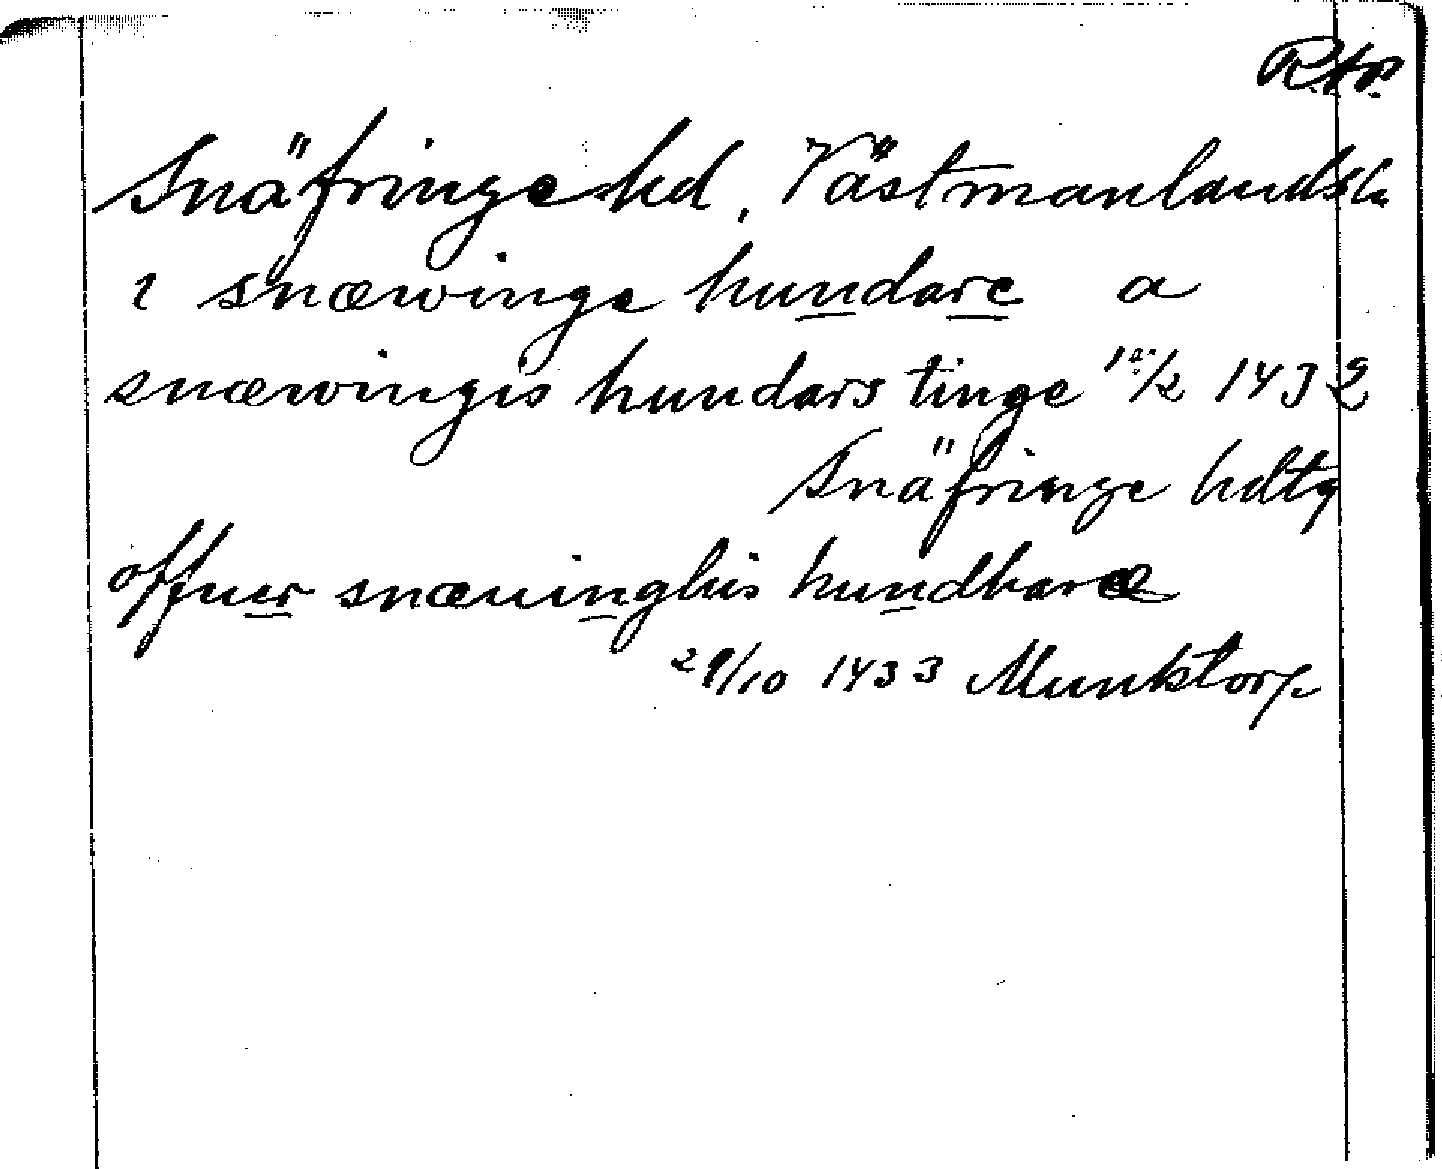 RAp.
Snäfringe hd, Västmanlands la
i snæwinge hundare a
snæwingis hundars tinge /2 1432
Snäfringe hdtg
offuer snæuinghis hundhare
29/10 1433 Munktorp